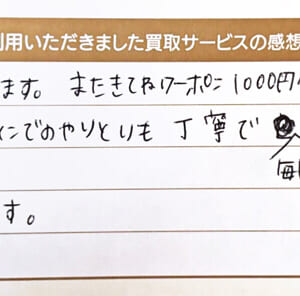 利用いただきました買取サービスの感想
ます。またきてねクーポン1000円
インでのやりとりも 丁寧で
毎
す。